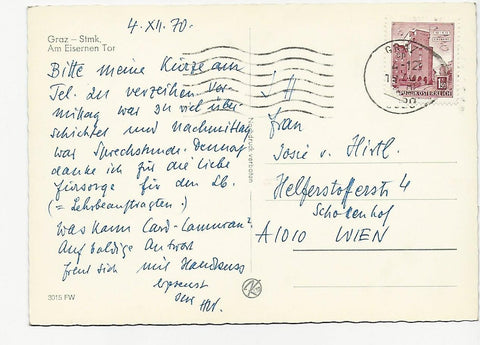 4. XII. 70.
Graz – Stmk.
Am Eisernen Tor
Bitte meine Kürze am
Tel. zu verzeihen. Vor-
mittag war zu viel über-
schichtet und Nachmittag
war Sprechstunde. Dennoch
danke ich für die liebe
Fürsorge für den Lb.
(= Lehrbeauftragten.)
Was kann
Auf baldige Antwort
freut sich mit Handkuss
Ihr
3015 FW
Nachdruck verboten
Frau
Josie v. Hirtl.
Helferstorferstr 4
Schottenhof
A1010 WIEN
REPUBLIK ÖSTERREICH